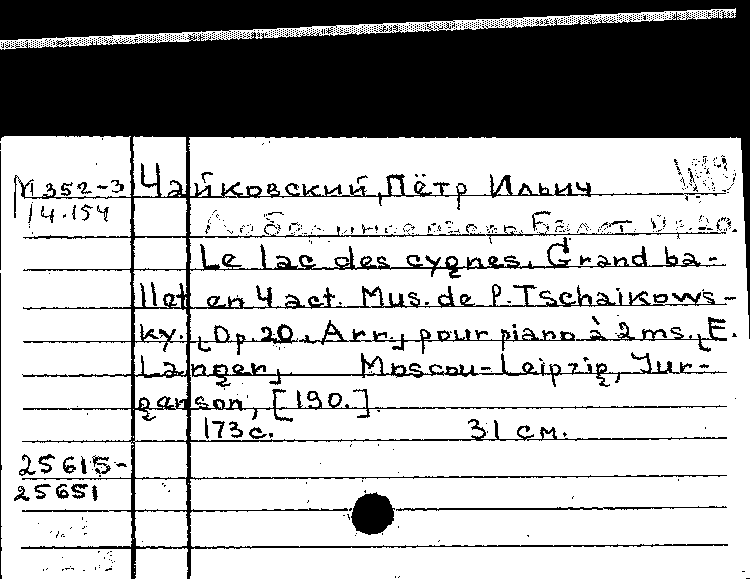 М 352-3 Чайковский, Пётр Ильич
14.154
Лебединое озеро. Балет. Op. 20.
Le lac des cygnes. Grand bal-
let en 4 act. Mus. de P. Tschaikows-
ky. [Op. 20. Arr.] pour piano à 2 ms. [E.
Langer] Moscou-Leipzig, Jur-
genson, [190.].
173 с. 31 см.
25615-
25651